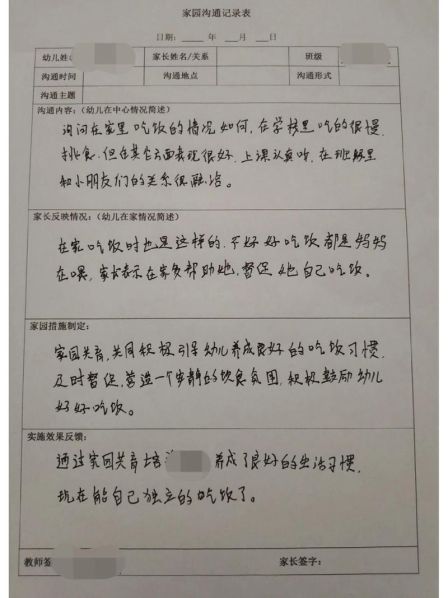 家园沟通记录表
日期： 年 月 日
幼儿姓 家长姓名/关系 班级
沟通时间 沟通地点 沟通形式
沟通主题
沟通内容：（幼儿在中心情况简述）
询问在家里吃饭的情况如何，在学校里吃的很慢，
挑食，但在其它方面表现很好，上课认真听，在班级里
和小朋友们的关系很融洽。
家长反映情况：（幼儿在家情况简述）
在家吃饭时也是这样的，不好好吃饭，都是妈妈
在喂，家长表示在家多帮助她，督促她自己吃饭。
家园措施制定：
家园共育，共同积极引导幼儿养成良好的吃饭习惯，
及时督促，营造一个安静的饮食氛围，积极鼓励幼儿
好好吃饭。
实施效果反馈：
通过家园共育培 养成了良好的生活习惯，
现在能自己独立的吃饭了。
教师签 家长签字：